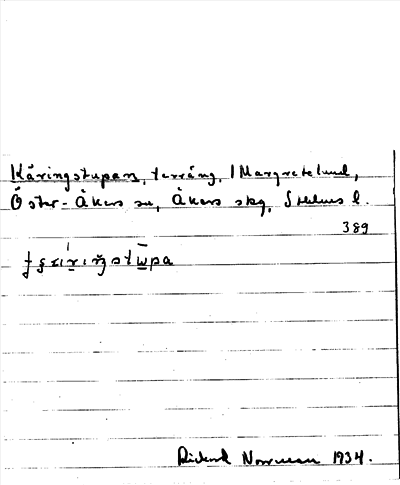 Käringstupan, terräng, / Margretelund,
Öster-Åkers sn, Åkers skg, Sthlms l.
389
Rickard Norrman 1934.